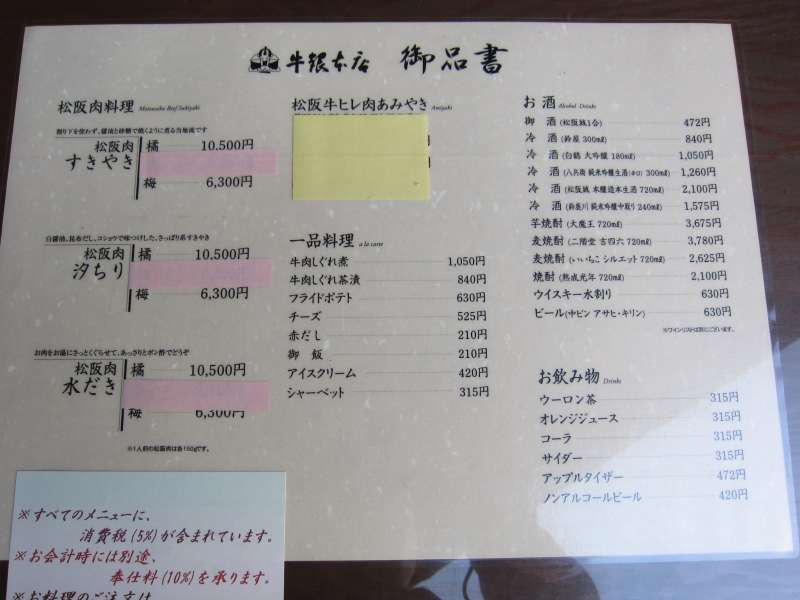 牛銀本店 御品書
松阪肉料理 Matsusaka Beef Sukiyaki
割り下を使わず、醤油と砂糖で焼くように煮る当地流です
松阪肉
すきやき
橘 10,500円
梅 6,300円
白醤油、昆布だし、コショウで味つけした、さっぱり系すきやき
松阪肉
汐ちり
橘 10,500円
梅 6,300円
お肉をお湯にさっとくぐらせて、あっさりとポン酢でどうぞ
松阪肉
水だき
橘 10,500円
梅 6,300円
※1人前の松阪肉は各150gです。
※すべてのメニューに、
消費税(5%)が含まれています。
※お会計時には別途、
奉仕料(10%)を承ります。
※お料理のご注文は
松阪牛ヒレ肉あみやき Amiyaki
円
円
一品料理 a la carte
牛肉しぐれ煮 1,050円
牛肉しぐれ茶漬 840円
フライドポテト 630円
チーズ 525円
赤だし 210円
御飯 210円
アイスクリーム 420円
シャーベット 315円
お酒 Alcohol Drinks
御酒(松阪城1合) 472円
冷酒(鈴屋 300㎖) 840円
冷酒(白鶴 大吟醸 180㎖) 1,050円
冷酒(八兵衛 純米吟醸生酒(辛口) 300㎖) 1,260円
冷酒(松阪城 本醸造本生酒 720㎖) 2,100円
冷酒(鉾釜川 純米吟醸中取り 240㎖) 1,575円
芋焼酎(大魔王 720㎖) 3,675円
麦焼酎(二階堂 吉四六 720㎖) 3,780円
麦焼酎(いいちこ シルエット 720㎖) 2,625円
焼酎(熟成光年 720㎖) 2,100円
ウイスキー水割り 630円
ビール(中ビン アサヒ・キリン) 630円
※ワインリストは別にございます。
お飲み物 Drinks
ウーロン茶 315円
オレンジジュース 315円
コーラ 315円
サイダー 315円
アップルタイザー 472円
ノンアルコールビール 420円